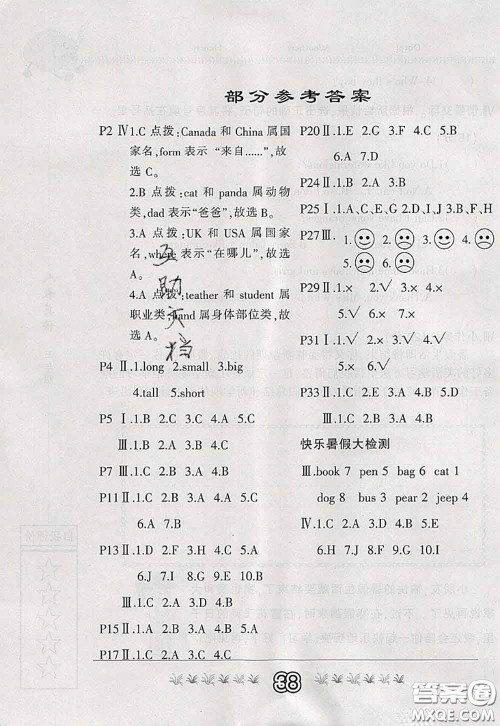 部分参考答案
P2 Ⅳ 1.C 点拨:Canada 和 China 属国
家名,form 表示 “来自……”,故
选 C。
2.B 点拨:cat 和 panda 属动物
类,dad 表示“爸爸”,故选 B。
3.A 点拨:UK 和 USA 属国家
名,where 表示“在哪儿”,故选 A。
4.A 点拨:teather 和 student 属
职业类,hand 属身体部位类,故
选 A。
P4 Ⅱ 1.long 2.small 3.big
4.tall 5.short
P5 Ⅰ 1.B 2.C 3.C 4.A 5.C
Ⅲ 1.B 2.A 3.B 4.C
P7 Ⅲ 1.C 2.A 3.A 4.C
P11 Ⅱ 1.C 2.B 3.C 4.B 5.C
6.A 7.B
P13 Ⅱ 1.D 2.F 3.H 4.C 5.A
6.J 7.I 8.E 9.B 10.G
Ⅲ 1.C 2.A 3.D 4.B
P15 Ⅱ 1.B 2.A 3.A 4.A 5.A
P17 Ⅱ 1.C 2.A 3.B 4.C 5.C
P20 Ⅱ 1.E 2.G 3.F 4.C 5.D
6.B 7.A
P24 Ⅱ 1.C 2.A 3.A 4.B 5.C
P25 Ⅰ 1.A、C、E、G 2.D、J 3.H、I
P27 Ⅲ. 1. 2. 3. 4.
5. 6.
P29 Ⅱ 1.× 2.√ 3.× 4.×
5.√ 6.√ 7.×
P31 Ⅰ 1.× 2.√ 3.√ 4.×
5.√ 6.×
P33 Ⅱ 1.B 2.D 3.A 4.C
Ⅲ 1.B 2.C 3.A 4.C
快乐暑假大检测
Ⅲ.book 7 pen 5 bag 6 cat 1
dog 8 bus 3 pear 2 jeep 4
Ⅳ.1.C 2.A 3.C 4.B 5.C
6.B 7.A 8.C
互助文档
38
答案圈
MXQE.COM